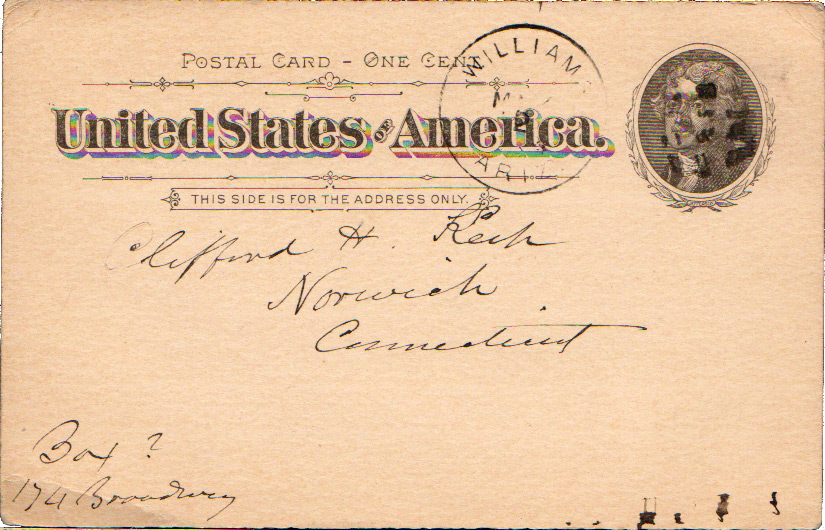 POSTAL CARD - ONE CENT
United States of America.
THIS SIDE IS FOR THE ADDRESS ONLY.
WILLIAMS
ARIZ
Clifford H.
Norwich
Connecticut
Box ?
174 Broadway